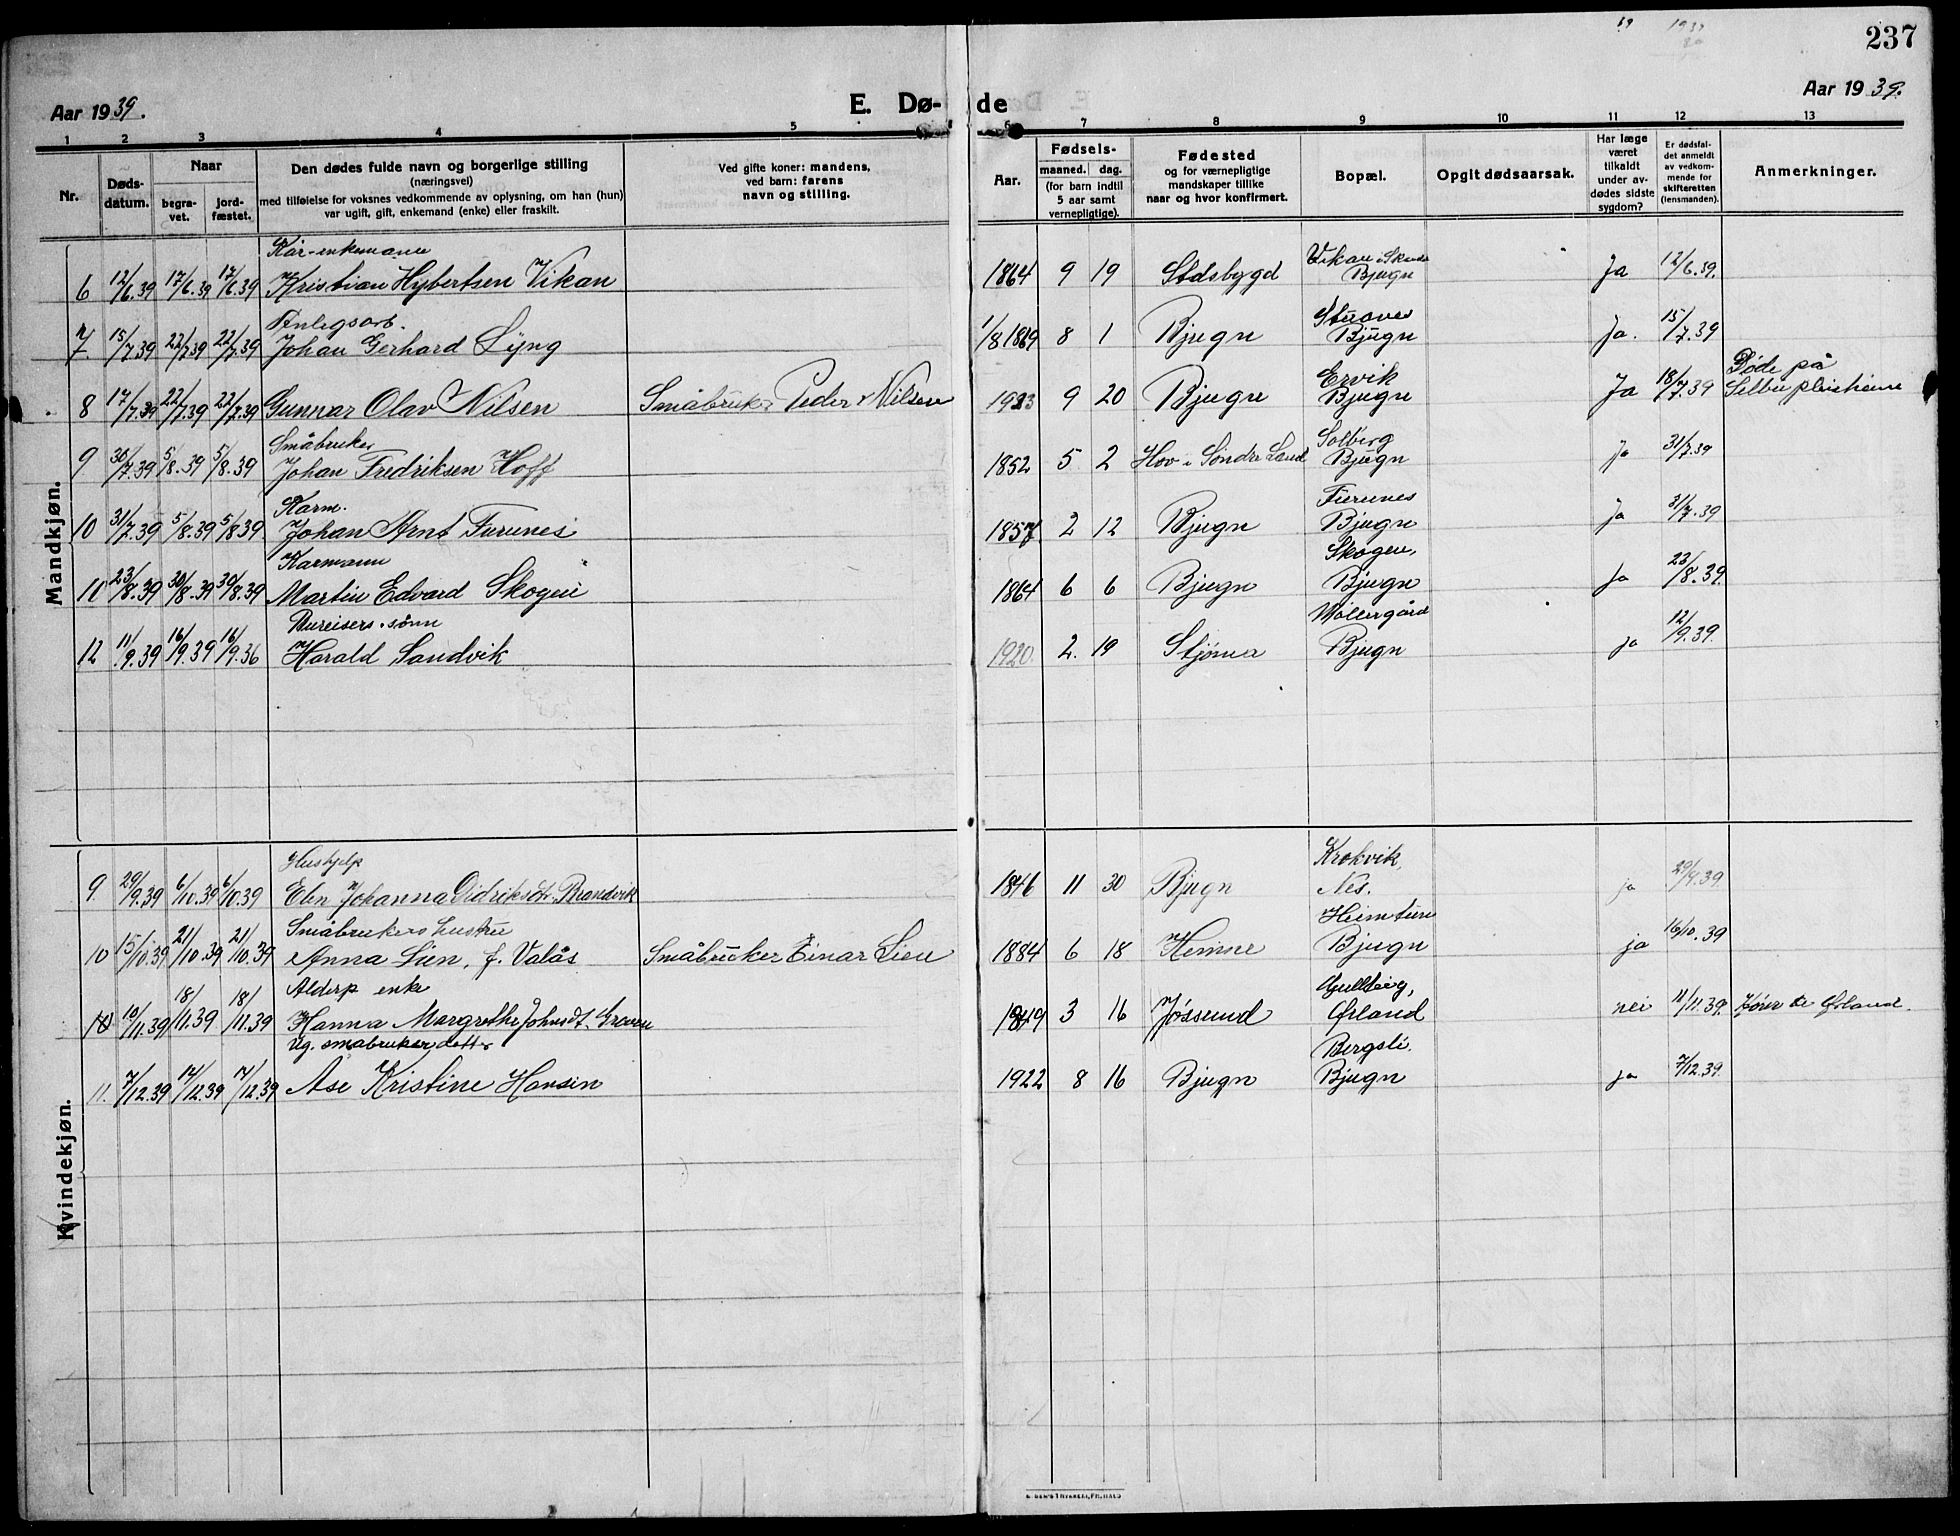 237
Aar 1939.
E. Dø- de
Aar 1939.
1 2 3 4 5 6 7 8 9 10 11 12 13
Nr.
Døds-
datum.
Naar
begra-
vet.
jord-
fæstet.
Den dødes fulde navn og borgerlige stilling
(næringsvei)
med tilføielse for voksnes vedkommende av oplysning, om han (hun)
var ugift, gift, enkemand (enke) eller fraskilt.
Ved gifte koner: mandens,
ved barn: farens
navn og stilling.
Aar.
Fødsels-
maaned. dag.
(for barn indtil
5 aar samt
vernepligtige).
Fødested
og for værnepligtige
mandskaper tillike
naar og hvor konfirmert.
Bopæl.
Opgit dødsaarsak.
Har læge
været
tilkaldt
under av-
dødes sidste
sygdom?
Er dødsfal-
det anmeldt
av vedkom-
mende for
skifteretten
(lensmanden).
Anmerkninger.
Mandkjøn.
Kår-enkemann Vikan i
6 12/6.39 17/6.39 17/6.39 Kristian Hybertsen Vikan 1864 9 19 Stadsbygd Bjugn Ja 12/6.39.
Anlegsarb.
7 15/7.39 22/7.39 22/7.39 Johan Gerhard Lyng 1/8 1869 8 1 Bjugn Bjugn Ja. 15/7.39
Ervik Døde på
8 17/7.39 22/7.39 22/7.39 Gunnar Olav Nilsen Småbruker Peder Nilsen 1923 9 20 Bjugn Bjugn Ja 18/7.39 Selbu pleieheim
Småbruker Solberg
9 30/7.39 5/8.39 5/8.39 Johan Fredriksen Hoff 1852 5 2 Hov i Søndre Land Bjugn Ja 31/7.39
Karm. Furunes
10 31/7.39 5/8.39 5/8.39 Johan Arnt Furunes 1857 2 12 Bjugn Bjugn Ja 31/7.39
Karmann Skogen,
11 23/8.39 30/8.39 30/8.39 Martin Edvard Skogen 1864 6 6 Bjugn Bjugn Ja 23/8.39.
Bureisers sønn Møllergård
12 11/9.39 16/9.39 16/9.36 Harald Sandvik 1920. 2. 19 Stjørna Bjugn ja 12/9.39.
Kvindekjøn.
Hushjelp Krokvik,
9. 29/9.39 6/10.39 6/10.39 Elen Johanna Didriksdtr. Brandvik 1846 11 30 Bjugn Nes. ja 29/9.39.
Småbrukers hustru Heimtun
10 15/10.39 21/10.39 21/10.39 Anna Lien, f. Valås Småbruker Einar Lien 1884 6 18 Hemne Bjugn ja 16/10.39
Alderp enke
10 10/11.39 18/11.39 18/11.39 Hanna Margrethe Johnsdt. Greven 1849 3 16 Jøssund Ørland nei 11/11.39. Ørland.
Ug. småbruker dotter Bergsli.
11. 7/12.39 14/12.39 Åse Kristine Hansen 1922 8 16 Bjugn Bjugn ja 7/12.39.